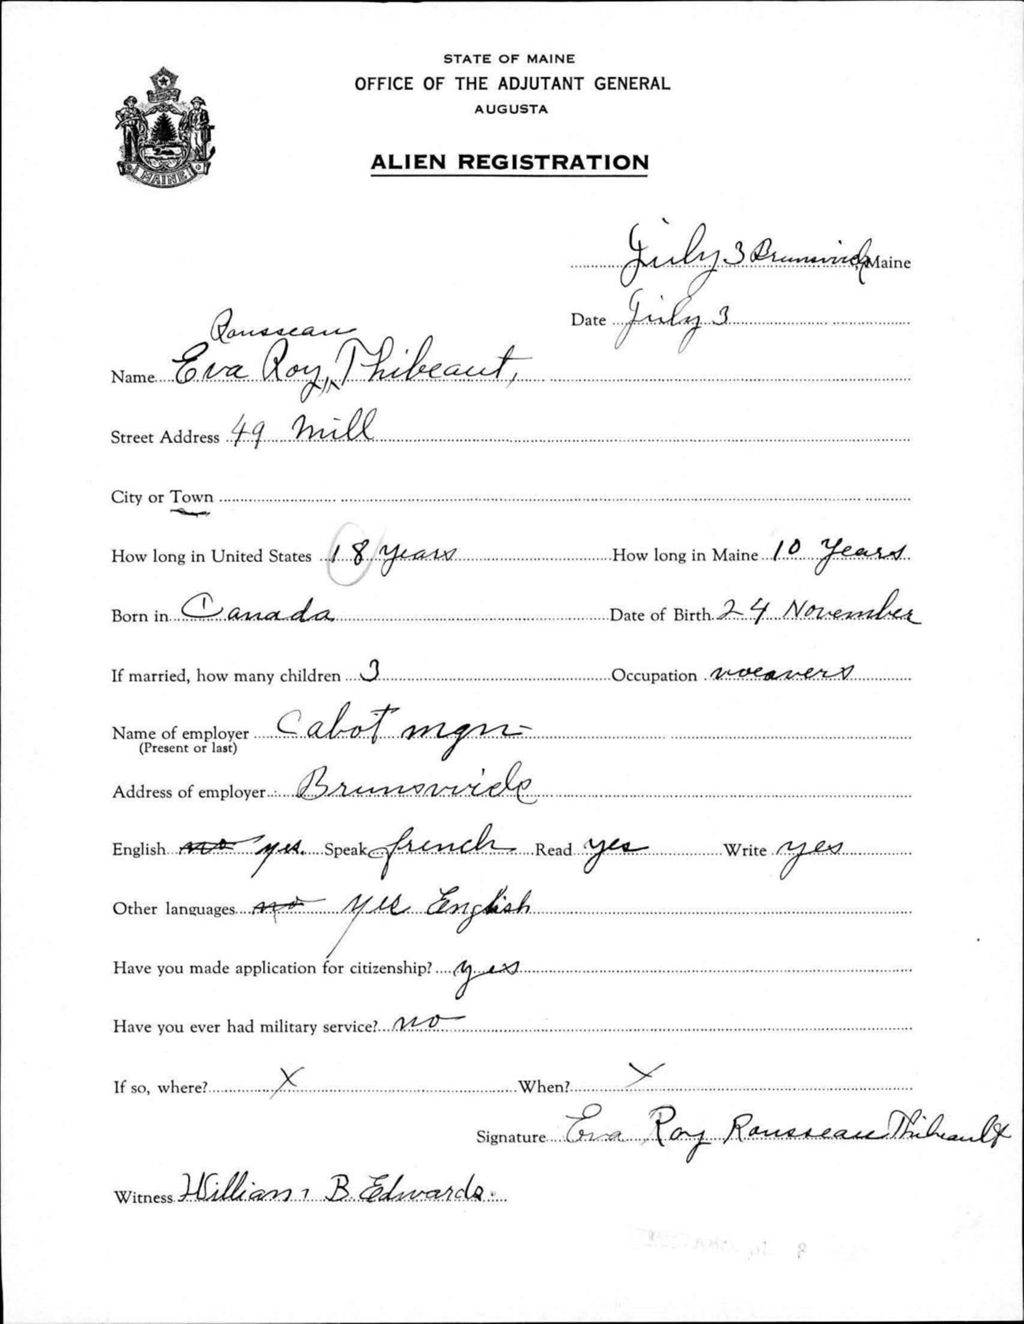 STATE OF MAINE
OFFICE OF THE ADJUTANT GENERAL
AUGUSTA
MAINE
ALIEN REGISTRATION
July 3 Brunswick, Maine
Date July 3
Rousseau
Name Eva Roy, Thibeaut,
Street Address 49 Mill
City or Town
How long in United States 18 years How long in Maine 10 years
Born in Canada Date of Birth 24 November
If married, how many children 3 Occupation weavers
Name of employer Cabot mgn
(Present or last)
Address of employer Brunswick
English no yes. Speak french Read yes Write yes
Other languages no yes English
Have you made application for citizenship? yes
Have you ever had military service? no
If so, where? X When? X
Signature Eva Roy Rousseau Thibeault
Witness William B. Edwards.